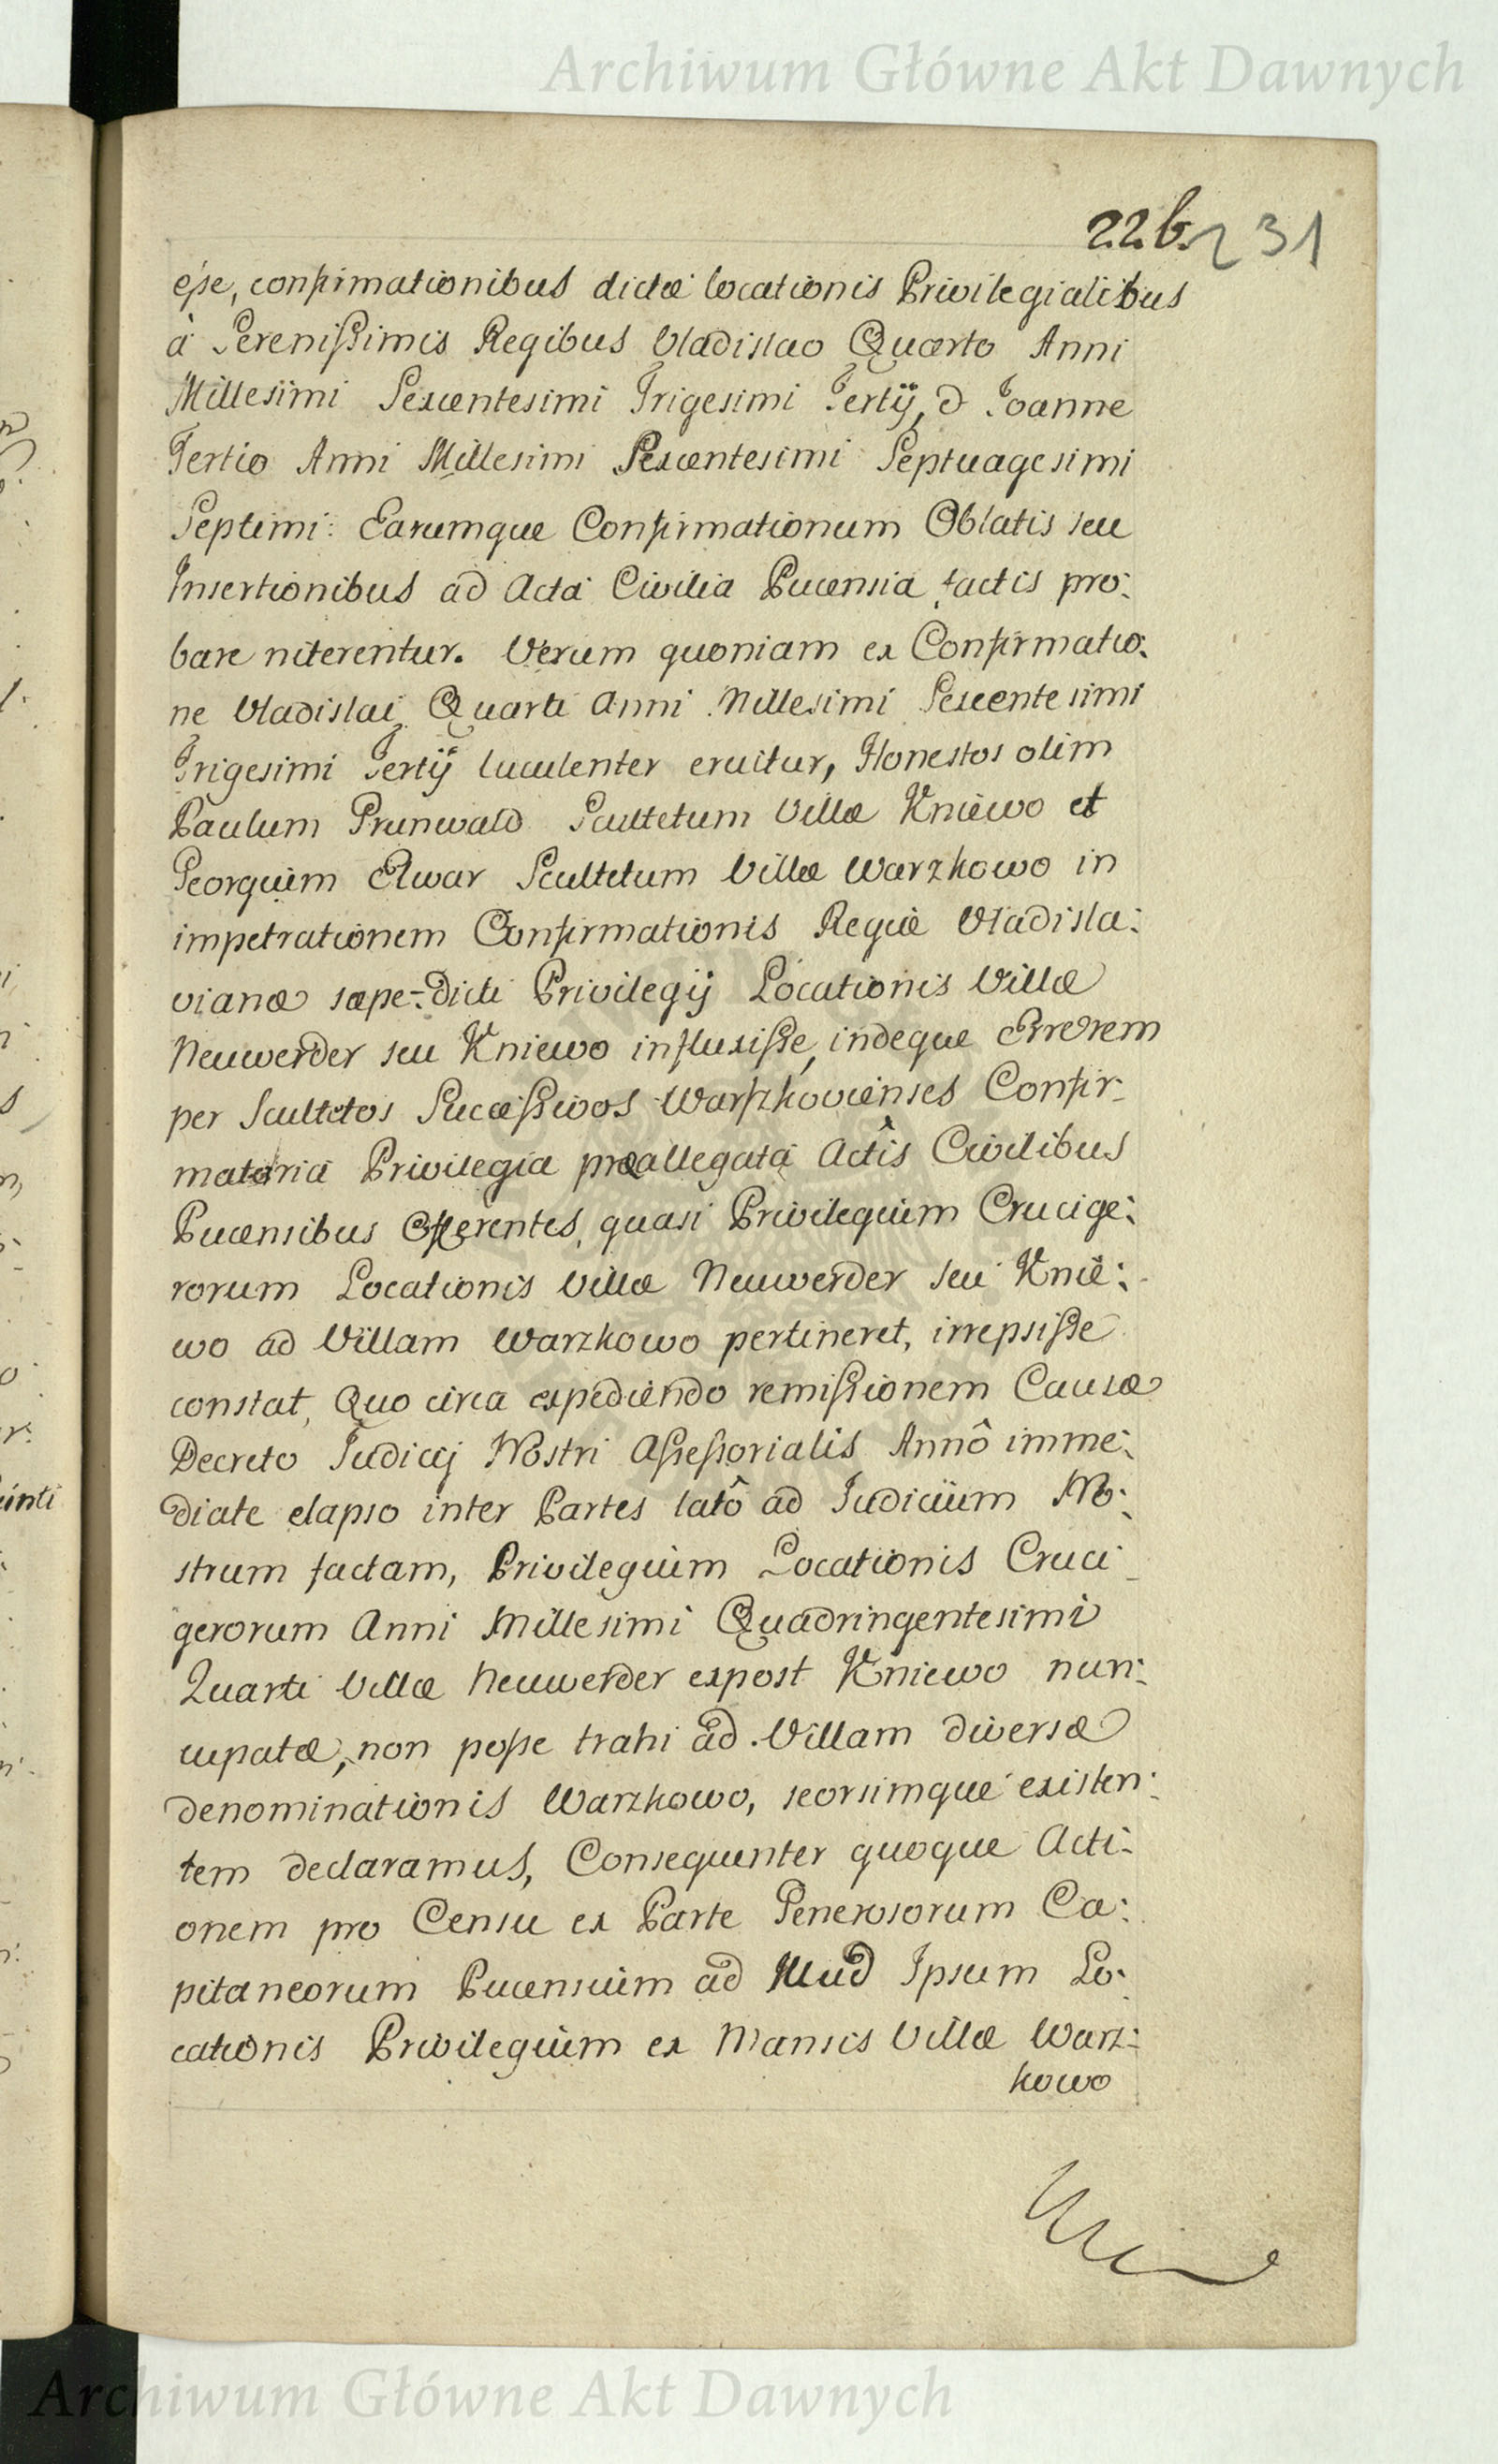 Archiwum Główne Akt Dawnych
226. 231
eſse, confirmationibus dictæ locationis Privilegialibus
à Sereniſsimis Regibus Vladislao Quarto Anni
Millesimi Sexcentesimi Trigesimi Tertÿ, & Joanne
Tertio Anni Millesimi Sexcentesimi Septuagesimi
Septimi: Earumque Confirmationum Oblatis seu
Insertionibus ad Acta Civilia Pucensia factis pro:
bare niterentur. Verum quoniam ex Confirmatio:
ne Vladislai Quarti Anni Millesimi Sexcentesimi
Trigesimi Tertÿ luculenter eruitur, Honestos olim
Paulum Grunwald Scultetum Villæ Kniewo et
Georgium Elwar Scultetum Villæ Warzkowo in
impetrationem Confirmationis Regiæ Vladisla:
vianæ sæpe-dicti Privilegÿ Locationis Villæ
Neuwerder seu Kniewo influxiſse, indeque Errorem
per Scultetos Succeſsivos Warſzkovienses Confir:
matoria Privilegia præallegata Actîs Civilibus
Pucensibus Offerentes, quasi Privilegium Crucige:
rorum Locationis Villæ Neuwerder seu Knie:
wo ad Villam Warzkowo pertineret, irrepsiſse
constat, Quo circa expediendo remiſsionem Causæ
Decreto Judicij Nostri Aſseſsorialis Annô imme:
diate elapso inter Partes latô ad Judicium No:
strum factam, Privilegium Locationis Cruci
gerorum Anni Millesimi Quadringentesimi
Quarti Villæ Neuwerder expost Kniewo nun:
cupatæ, non poſse trahi ad Villam diversæ
denominationis Warzkowo, seorsimque existen:
tem declaramus, Consequenter quoque Acti:
onem pro Censu ex Parte Generosorum Ca:
pitaneorum Pucensium ad Illud Ipsum Lo:
cationis Privilegium ex Mansis Villæ Warz:
kowo
Archiwum Główne Akt Dawnych